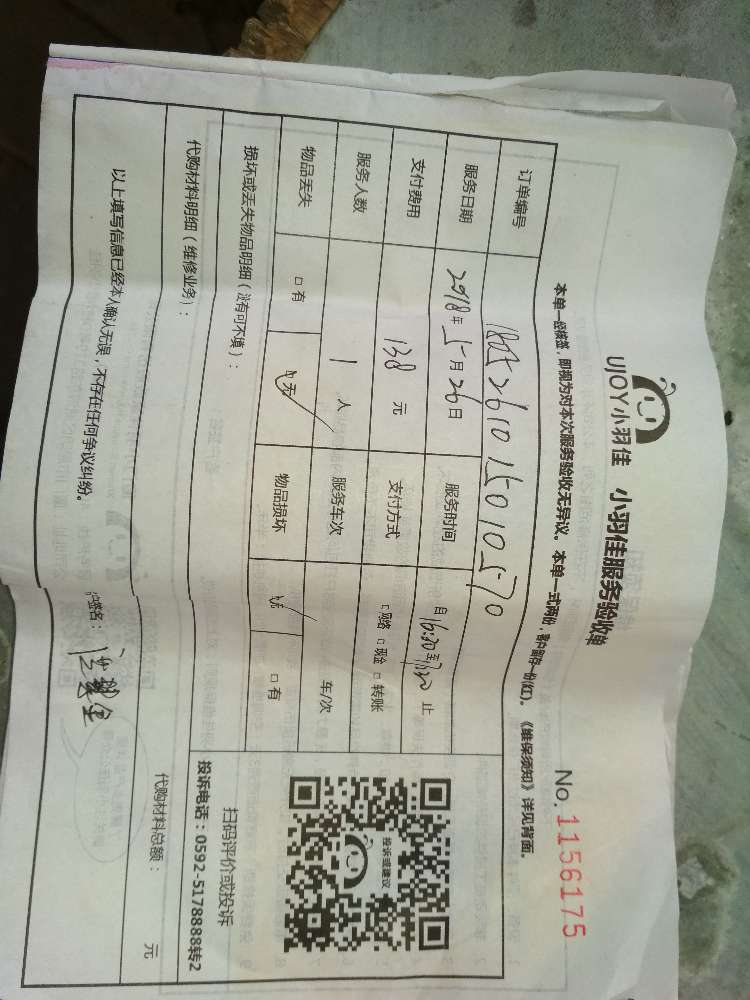 UJOY小羽佳 小羽佳服务验收单
No. 1156175
本单一经核签，即视为对本次服务验收无异议。本单一式两份，客户留存一份(红)。《维保须知》详见背面。
订单编号 1805261015010570
服务日期 2018年5月26日 服务时间 自16:20至17:20止
支付费用 138元 支付方式 □网络 □现金 □转账
服务人数 1人 服务车次 车/次
物品丢失 □有 ☑无 物品损坏 ☑无 □有
损坏或丢失物品明细（没有可不填）：
投诉或建议
扫码评价或投诉
投诉电话：0592-5178888转2
代购材料明细（维修业务）：
代购材料总额： 元
以上填写信息已经本人确认无误，不存在任何争议纠纷。
户签名：